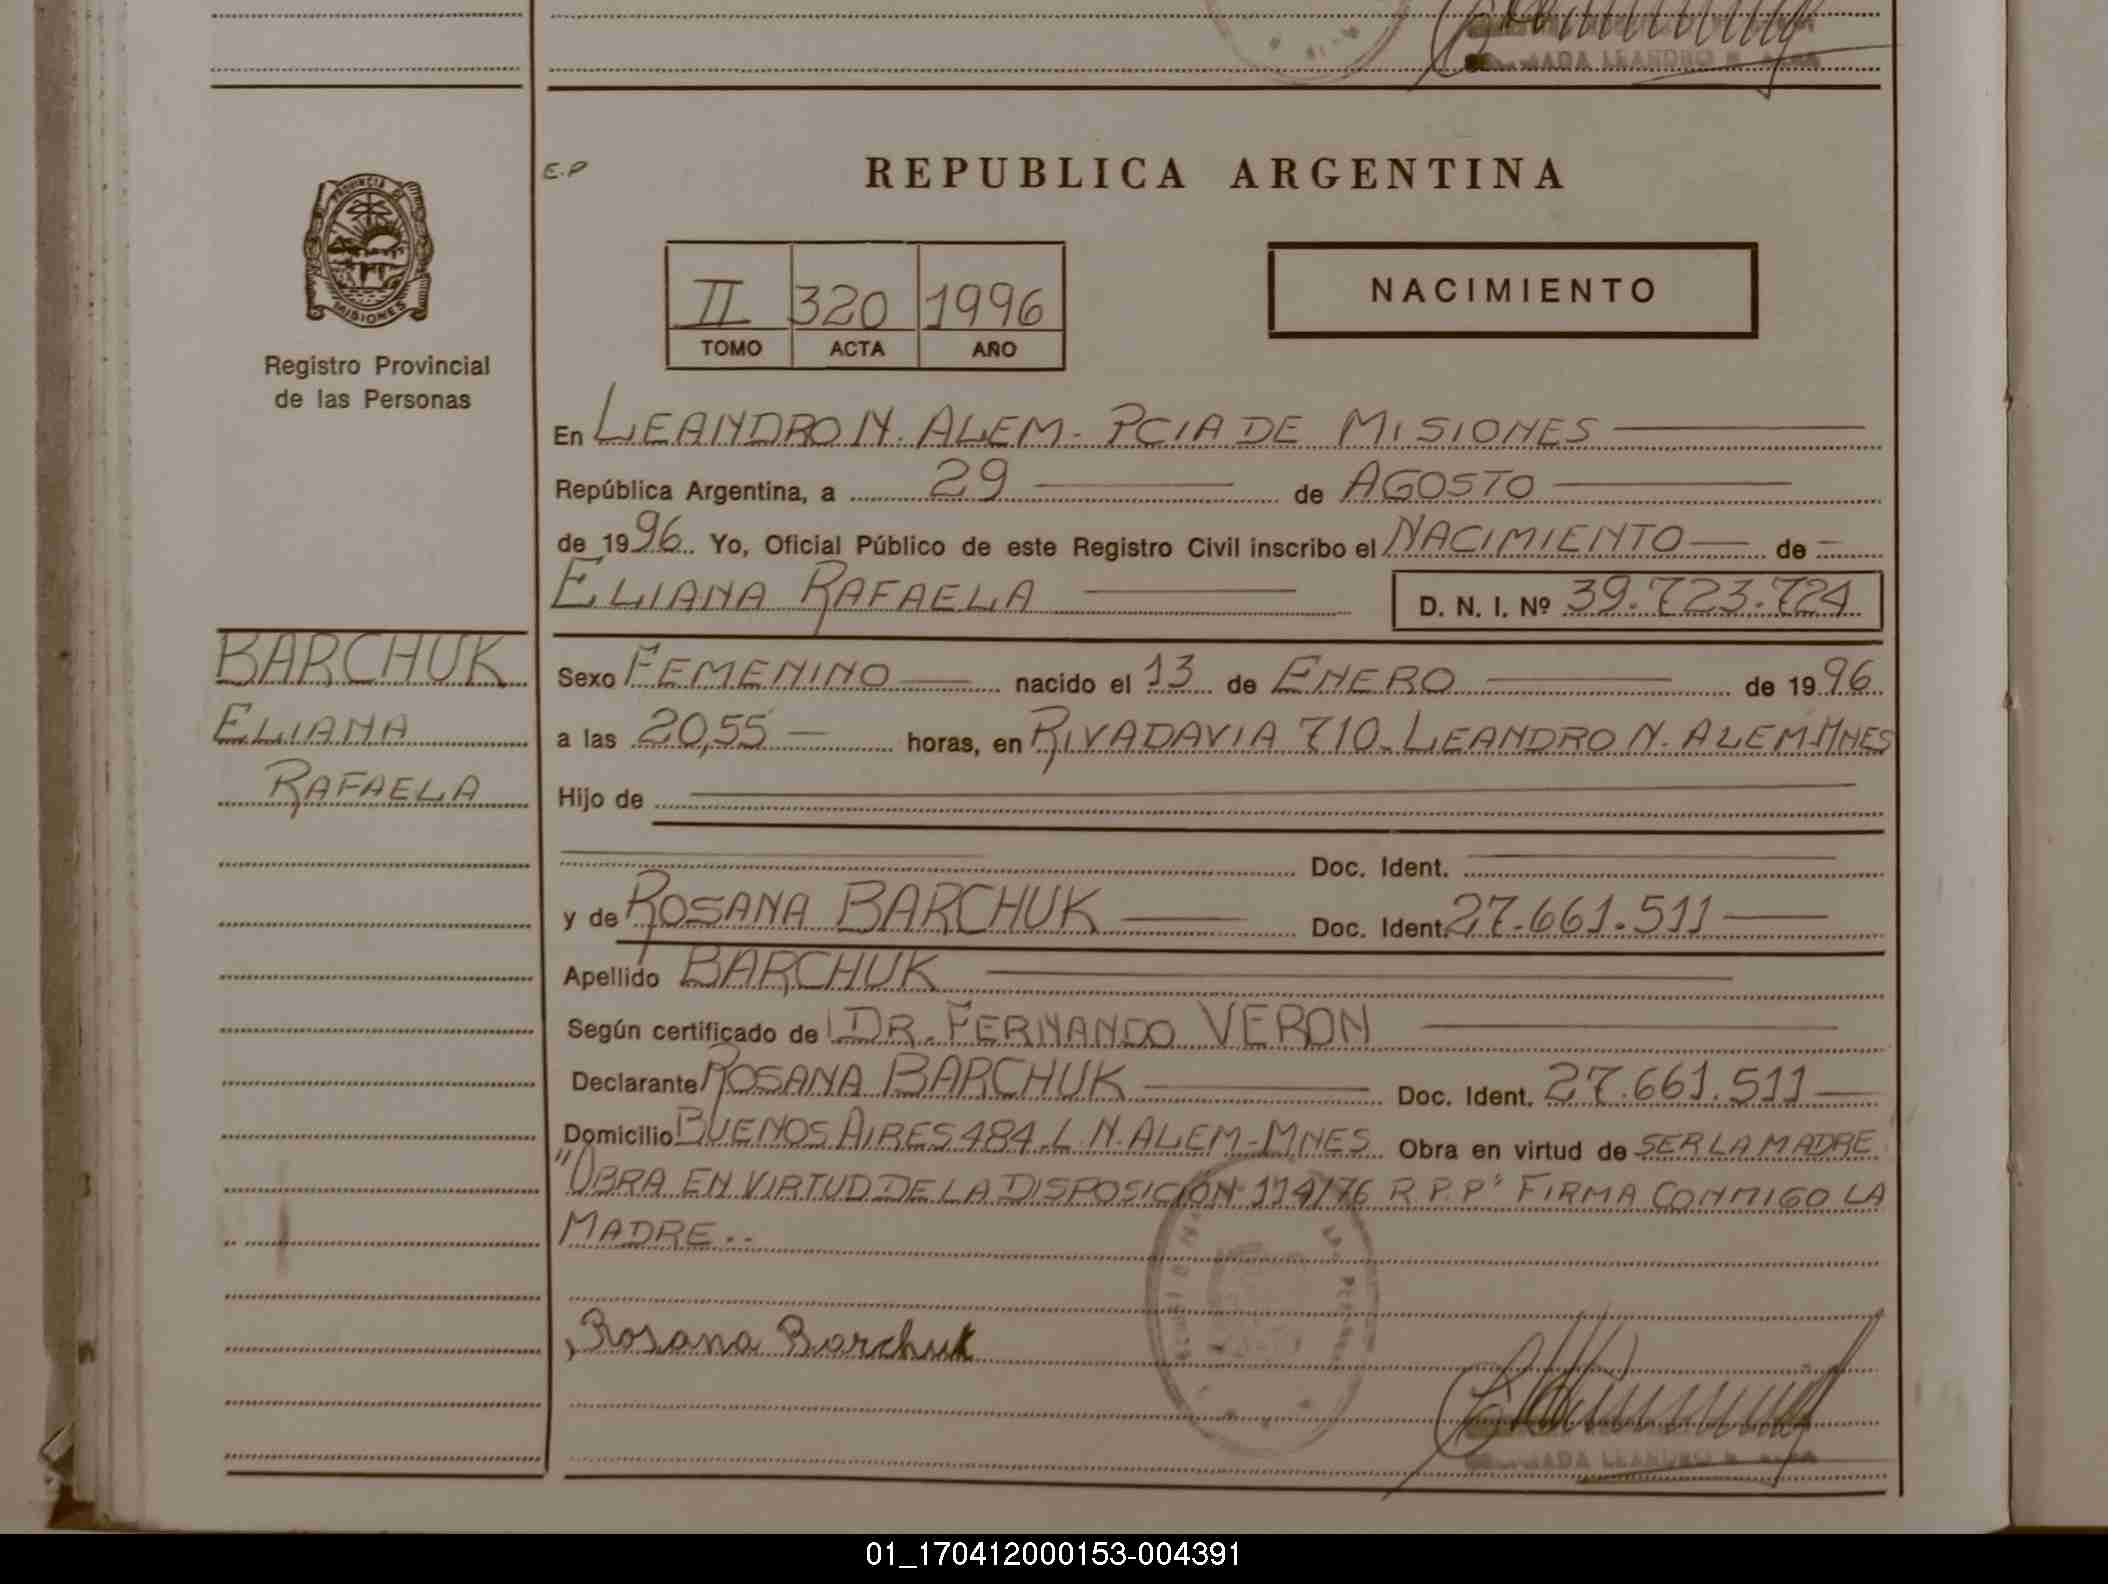 E.P
REPUBLICA ARGENTINA
PROVINCIA DE
MISIONES
Registro Provincial
de las Personas
II 320 1996
TOMO ACTA AÑO
NACIMIENTO
En LEANDRO N. ALEM - PCIA DE MISIONES
República Argentina, a 29 de AGOSTO
de 1996. Yo, Oficial Público de este Registro Civil inscribo el NACIMIENTO de
ELIANA RAFAELA D. N. I. Nº 39.723.724
BARCHUK
ELIANA
RAFAELA
Sexo FEMENINO nacido el 13 de ENERO de 1996
a las 20,55 horas, en RIVADAVIA 710. LEANDRO N. ALEM-MNES
Hijo de
Doc. Ident.
y de ROSANA BARCHUK Doc. Ident. 27.661.511
Apellido BARCHUK
Según certificado de DR. FERNANDO VERON
Declarante ROSANA BARCHUK Doc. Ident. 27.661.511
Domicilio BUENOS AIRES 484. L. N. ALEM-MNES Obra en virtud de SER LA MADRE
"OBRA EN VIRTUD DE LA DISPOSICIÓN 114/76 R.P.P" FIRMA CONMIGO LA
MADRE..
Rosana Barchuk
LEANDRO N. ALEM
01_170412000153-004391